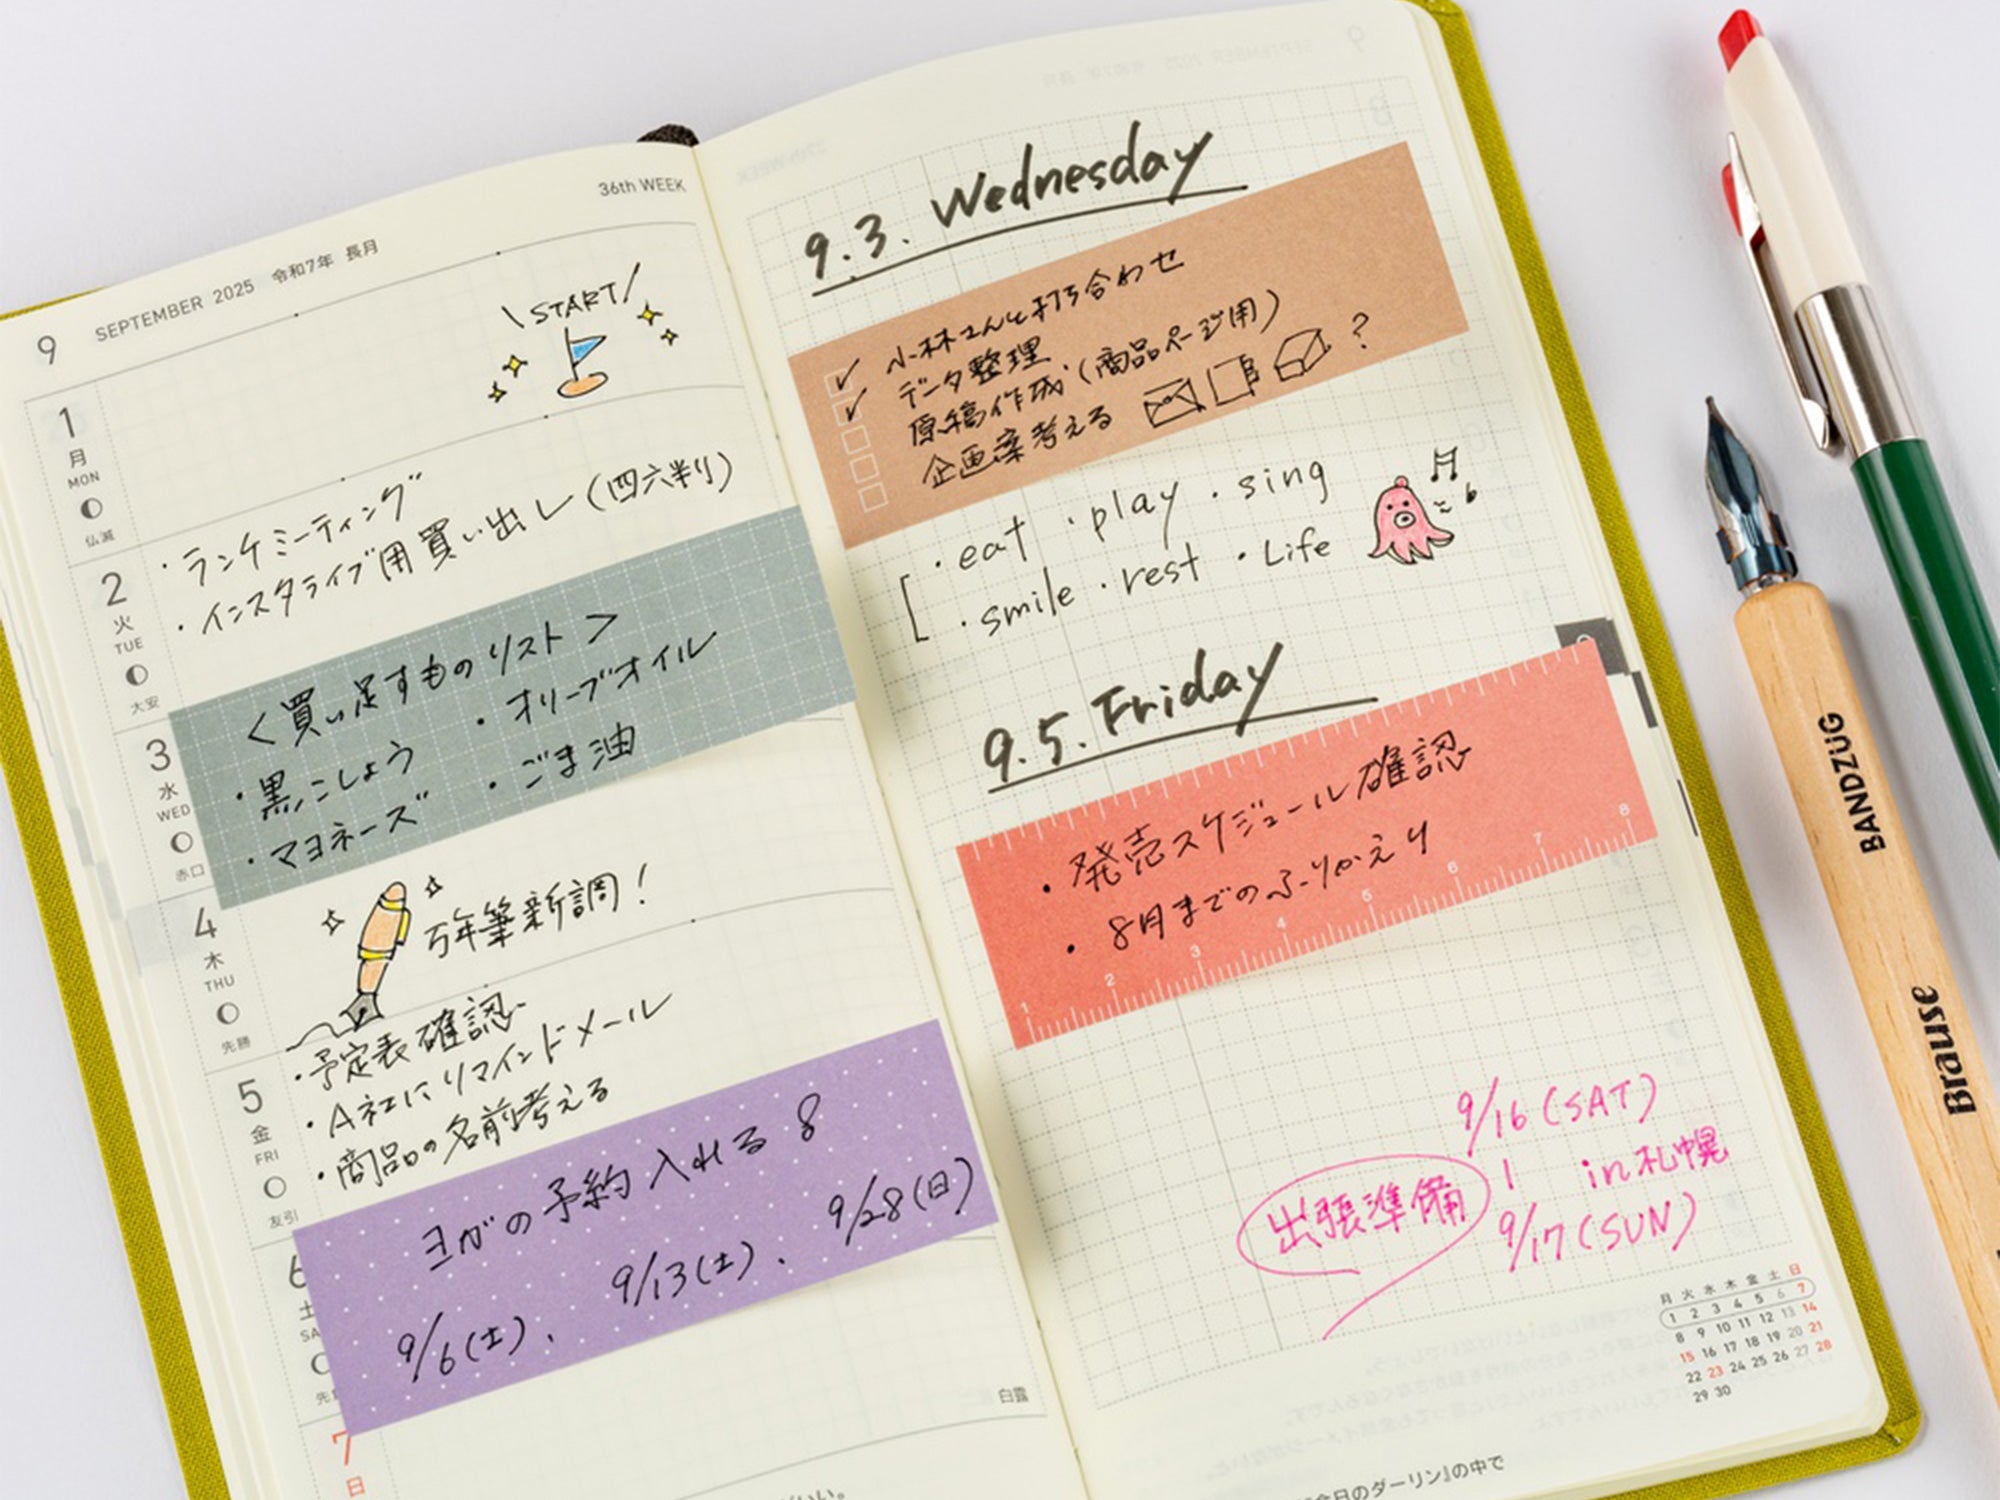 36th WEEK
9 SEPTEMBER 2025 令和7年 長月
\START/
1
月
MON
仏滅
・ランチミーティング
・インスタライブ用買い出し(四六判)
2
火
TUE
大安
<買い足すものリスト>
・黒こしょう ・オリーブオイル
・マヨネーズ ・ごま油
3
水
WED
赤口
万年筆新調!
4
木
THU
先勝
・予定表確認
・A社にリマインドメール
・商品の名前考える
5
金
FRI
友引
ヨガの予約入れる 8
9/6(土)、 9/13(土)、 9/28(日)
6
土
白露
7
日
9.3. Wednesday
✓ 小林さんと打ち合わせ
✓ データ整理
原稿作成(商品ページ用)
企画案考える ?
・eat ・play ・sing
・smile ・rest ・Life
9.5. Friday
・発売スケジュール確認
・8月までのふりかえり
1 2 3 4 5 6 7 8
9/16(SAT)
出張準備 | in札幌
9/17(SUN)
月 火 水 木 金 土 日
1 2 3 4 5 6 7
8 9 10 11 12 13 14
15 16 17 18 19 20 21
22 23 24 25 26 27 28
29 30
今日のダーリン』の中で
BANDZUG
Brause